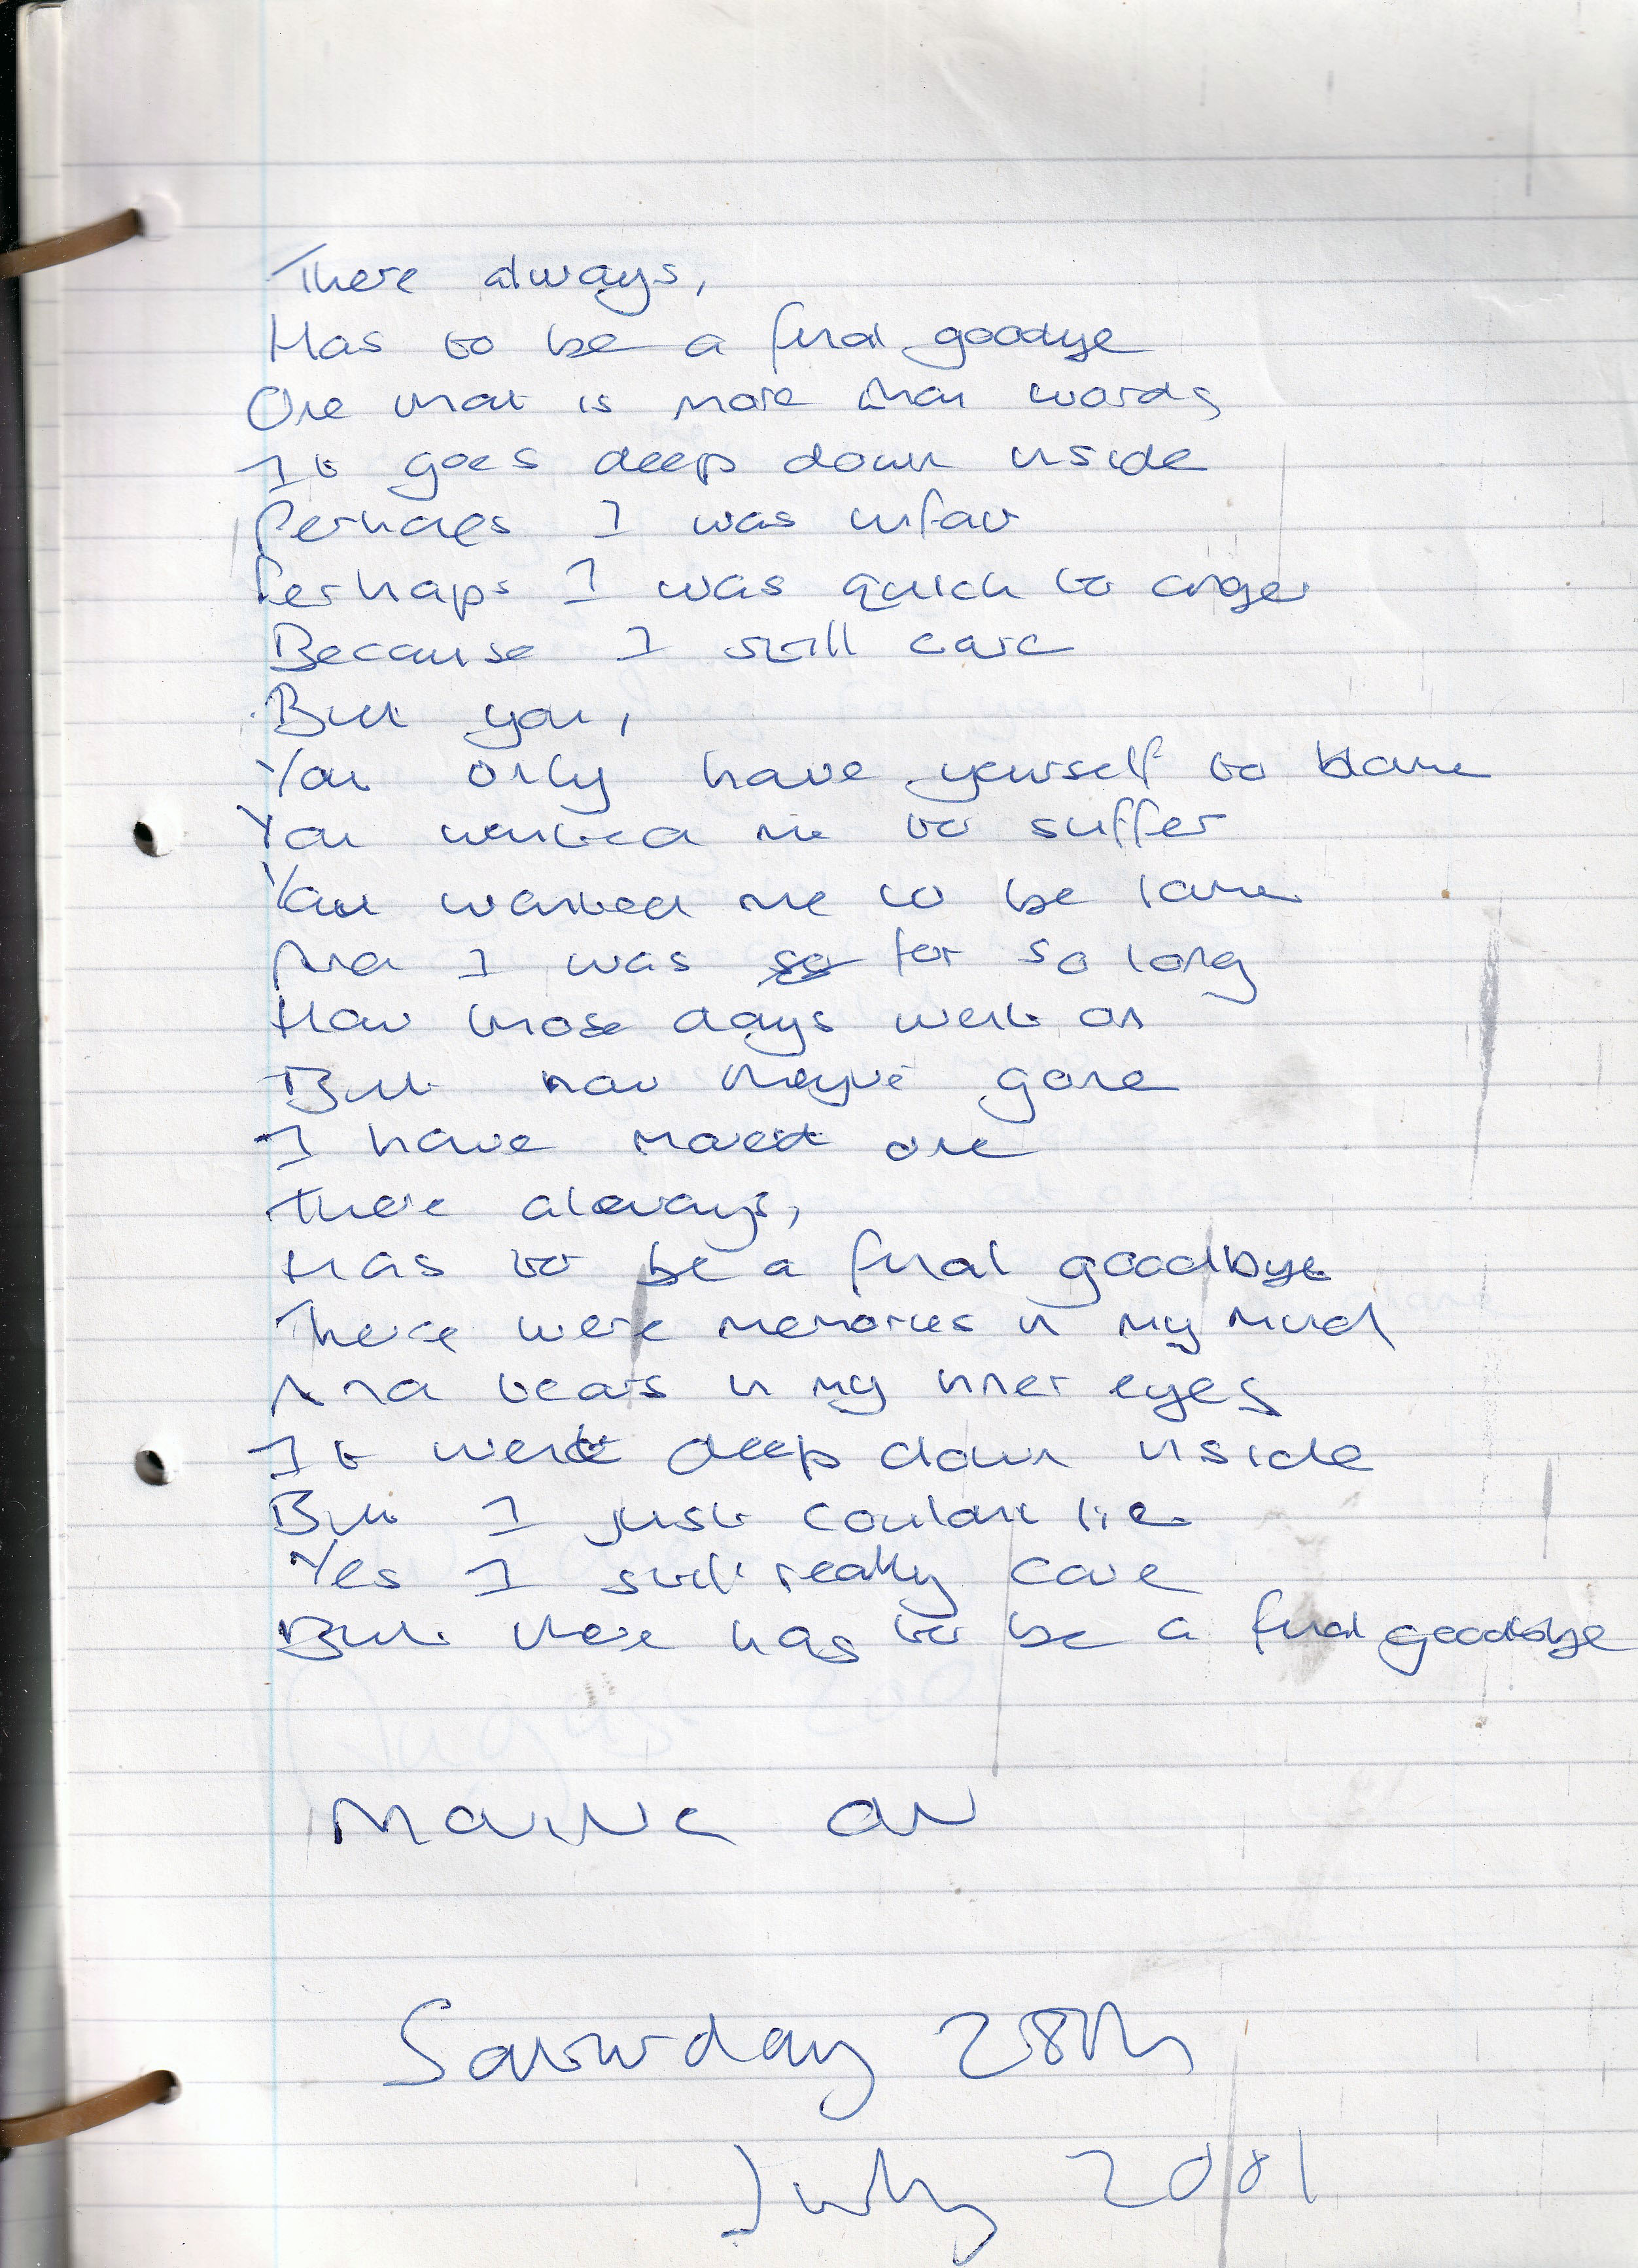 There always,
Has to be a final goodye
One that is more than words
It goes deep down inside
Perhaps I was unfair
Perhaps I was quick to anger
Because I still care
But you,
You only have yourself to blame
You wanted me to suffer
You wanted me to be lame
And I was so for so long
How those days went on
But now they've gone
I have moved one
There always,
Has to be a final goodbye
There were memories in my mind
And tears in my inner eyes
It went deep down inside
But I just couldnt lie
Yes I still really care
But there has to be a final goodbye
on
Saturday 28th
July 2001